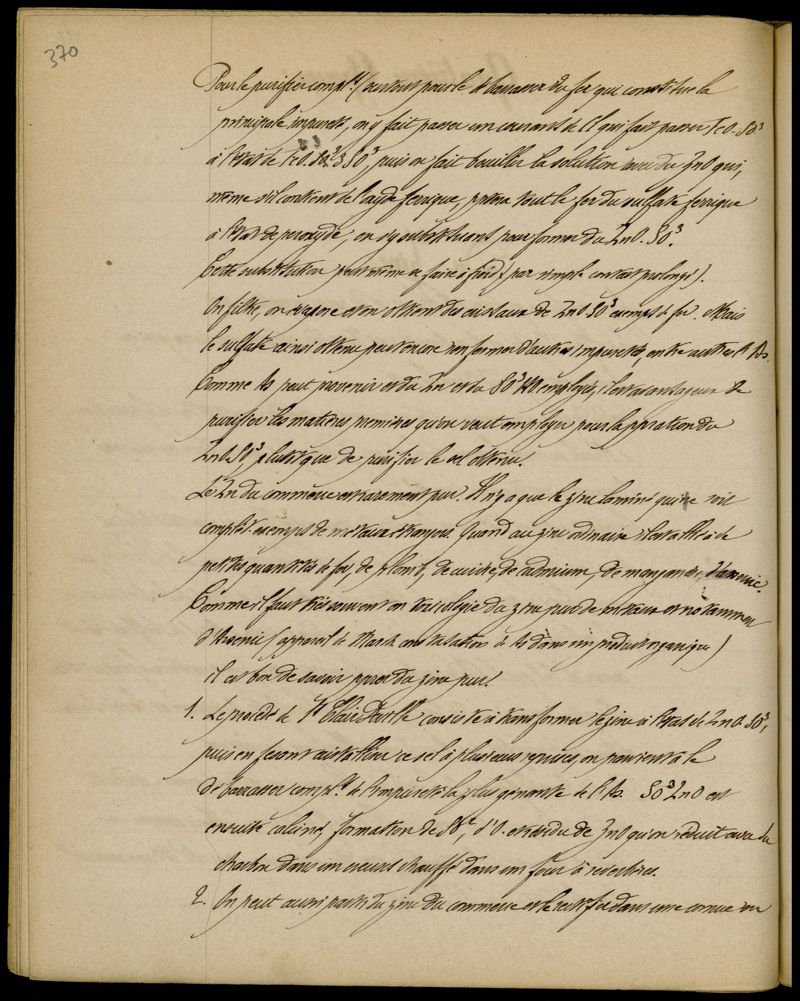 370
Pour le purifier compl.t (surtout pour le débarrasser du fer qui constitue la
principale impureté, on y fait passer un courant de Cl qui fait passer FeO.SO3
à l'état de Fe2O3 3SO3, puis on fait bouillir la solution avec du ZnO qui,
même s'il contient de l'oxyde ferrique, pptera tout le fer du sulfate ferrique
à l'état de peroxyde, en s'y substituant pour former du ZnO.SO3.
Cette substitution peut même se faire à froid (par simple contact prolongé).
On filtre, on évapore et on obtient des cristaux de ZnO SO3 exempt de fer. Mais
le sulfate ainsi obtenu peut encore renfermer d'autres impuretés, entre autres l'As.
Comme As peut provenir et du Zn et du SO3 employés, il est avantageux de
purifier les matières premières qu'on veut employer pour la pparation du
ZnO SO3, plutôt que de purifier le sel obtenu.
Le Zn du commerce est rarement pur. Il n'y a que le zinc laminé qui soit
complèt. exempt de métaux étrangers. Quand au zinc ordinaire il est allié à de
petites quantités de fer, de plomb, de cuivre, de cadmium, de manganèse, d'arsenic.
Comme il faut très souvent en toxicologie du zinc pur de métaux et notamment
d'Arsenic (appareil de Marsh, constatation de As dans un produit organique)
il est bon de savoir pparer du zinc pur.
1. Le procédé de St Claire Deville consiste à transformer le zinc à l'état de ZnO.SO3,
puis en fesant cristalliser ce sel à plusieurs reprises, on parvient à le
débarrasser compl.t de l'impureté la plus gênante de l'As. SO3ZnO est
ensuite calciné, formation de SO2, d'O. et résidu de ZnO qu'on réduit avec du
charbon dans un creuset chauffé dans un four à réverbère.
2. On peut aussi partir du zinc du commerce et le rectifier dans une cornue en